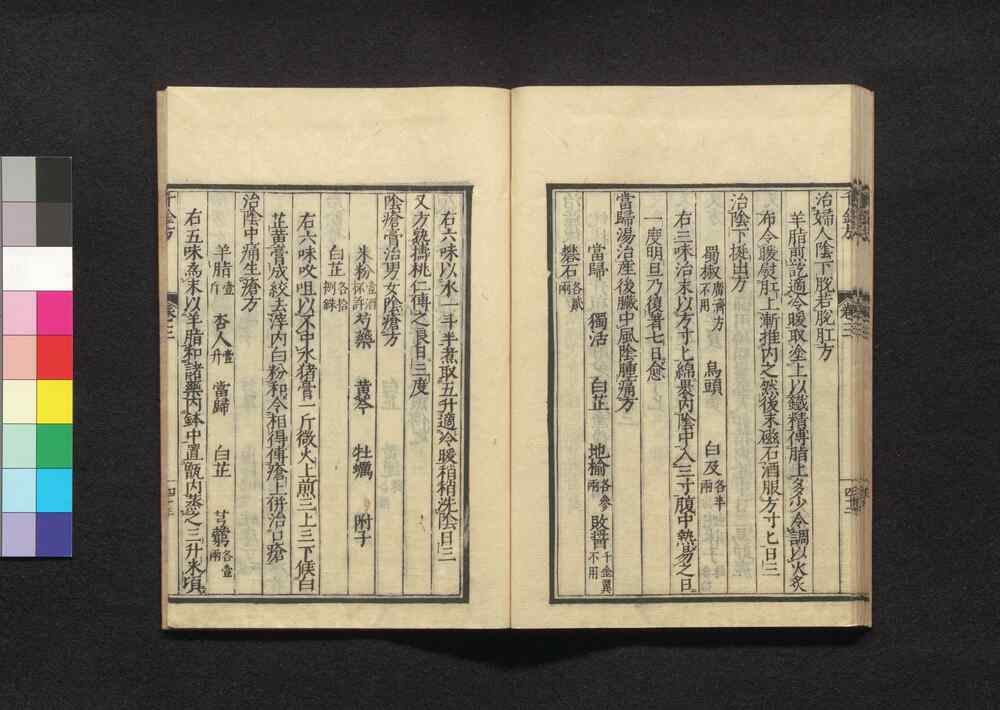 治婦人陰下脫若脫肛方
羊脂煎訖適冷暖取塗上以鐵精傅脂上多少令調以火炙
布令暖熨肛上漸推內之然後末磁石酒服方寸匕日三
治陰下挺出方
蜀椒 廣濟方不用 烏頭 白及 各半兩
右三味治末以方寸匕綿裹內陰中入三寸腹中熱易之日
一度明旦乃復著七日愈
當歸湯治產後臟中風陰腫痛方
當歸 獨活 白芷 地榆 各參兩 敗醬 千金翼不用
礬石 各貳兩
右六味以水一斗半煮取五升適冷暖稍稍洗陰日三
又方熟擣桃仁傅之良日三度
陰瘡膏治男女陰瘡方
米粉 壹酒杯許 芍藥 黃芩 牡蠣 附子
白芷 各拾捌銖
右六味㕮咀以不中水豬膏一斤微火上煎三上三下候白
芷黃膏成絞去滓內白粉和令相得傅瘡上併治口瘡
治陰中痛生瘡方
羊脂 壹斤 杏人 壹升 當歸 白芷 芎藭 各壹兩
右五味為末以羊脂和諸藥內鉢中置甑內蒸之三升米頃
千金方 卷三